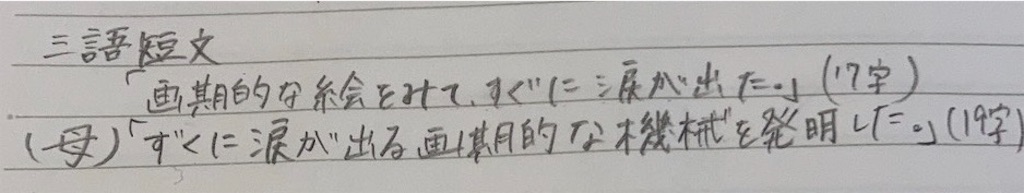 三語短文
「画期的な絵をみて、すぐに涙が出た。」(17字)
(母)「すぐに涙が出る画期的な機械を発明した。」(19字)